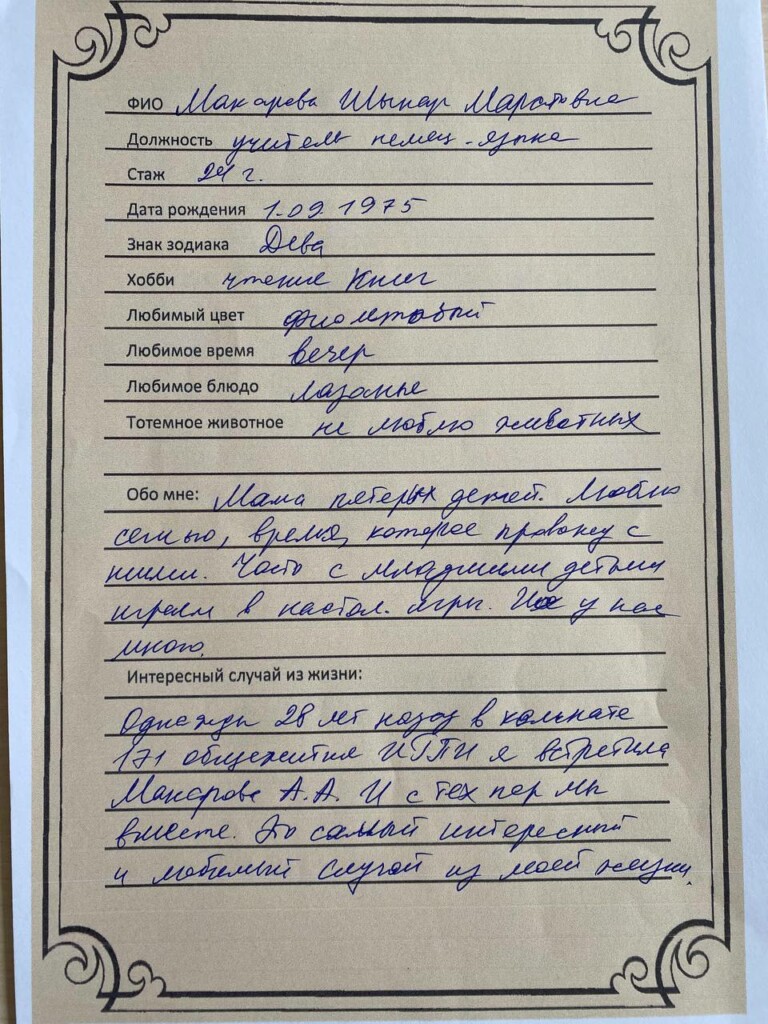 ФИО Макарова Шынар Маратовна
Должность учитель немец. языка
Стаж 24 г.
Дата рождения 1.09.1975
Знак зодиака Дева
Хобби чтение книг
Любимый цвет фиолетовый
Любимое время вечер
Любимое блюдо лазанье
Тотемное животное не люблю животных
Обо мне: Мама пятерых детей. Люблю
семью, время, которое провожу с
ними. Часто с младшими детьми
играем в настол. игры. Их у нас
много.
Интересный случай из жизни:
Однажды 28 лет назад в комнате
171 общежития ИГПИ я встретила
Макарова А.А. И с тех пор мы
вместе. Это самый интересный
и любимый случай из моей жизни.